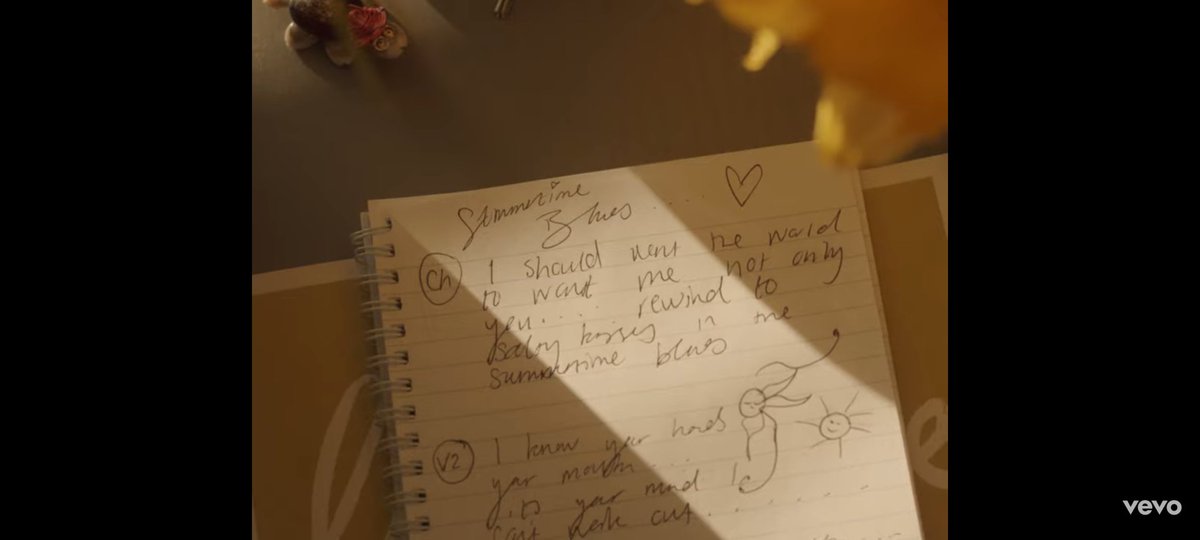 Summertime
Blues ....
Ch I should want the world
to want me not only
you.... rewind to
salty kisses in the
summertime blues
V2 I know your hands
your mouth...
its your mind I
can't work out........
vevo